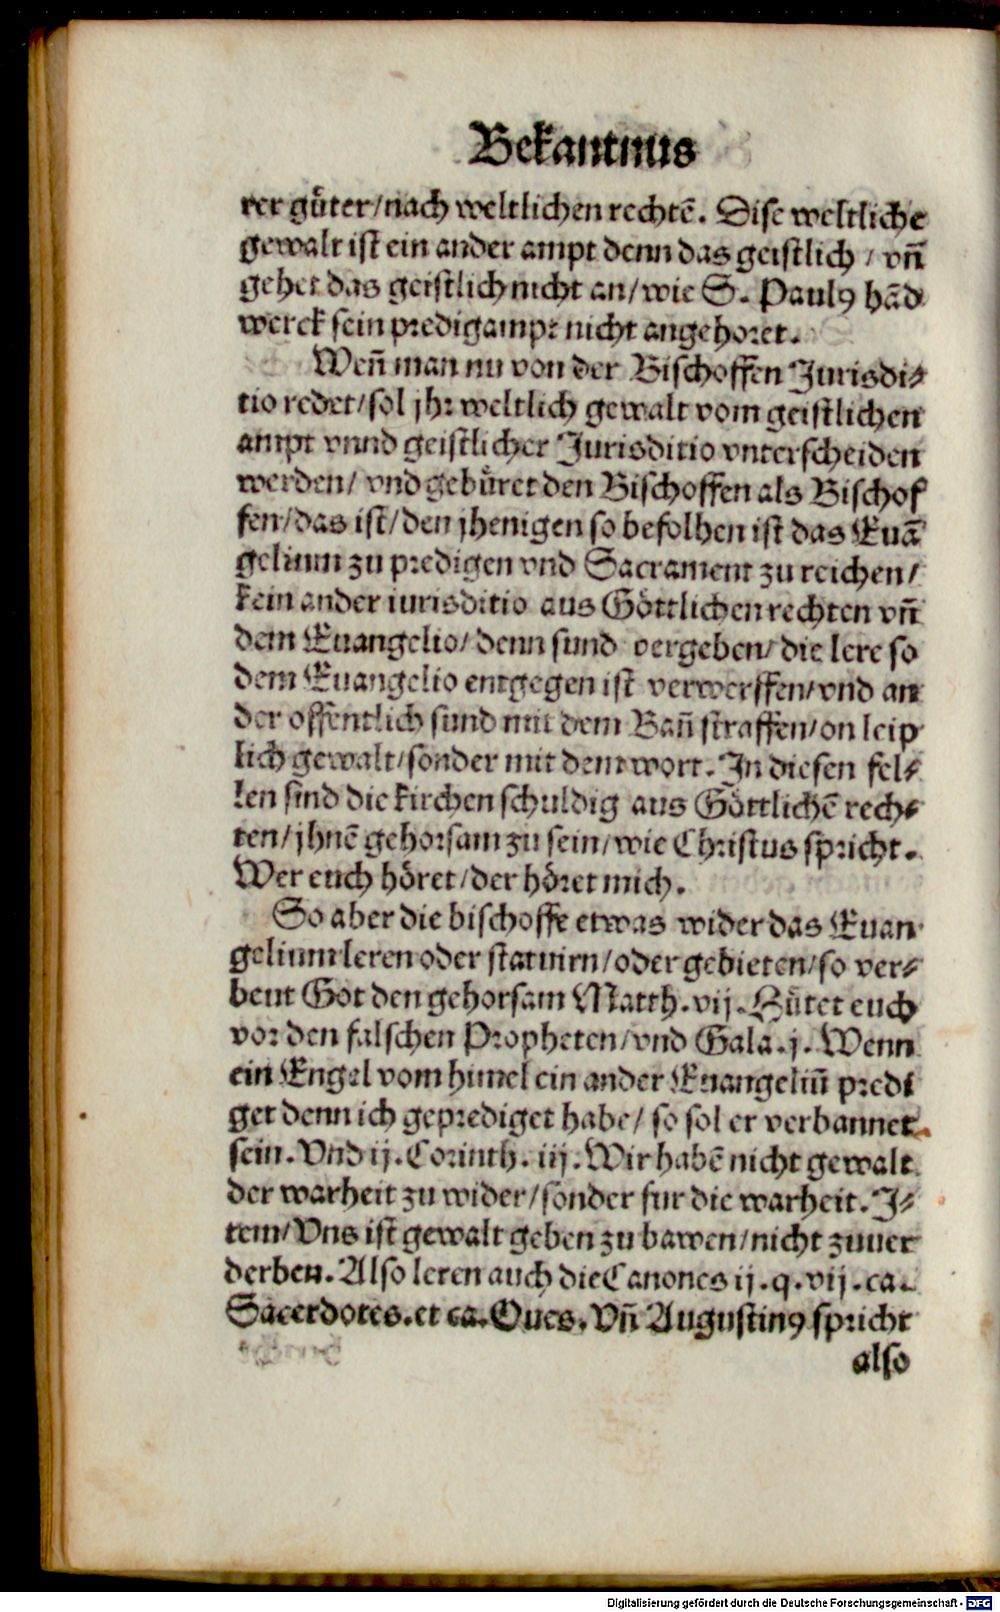 Bekantnus
rer guͤter/nach weltlichen rechtẽ. Dise weltliche
gewalt ist ein ander ampt denn das geistlich / vñ
gehet das geistlich nicht an/wie S. Paulꝰ hãd
werck sein predigampt nicht angehoret.
Weñ man nu von der Bischoffen Jurisdi⸗
tio redet/sol jhr weltlich gewalt vom geistlichen
ampt vnnd geistlicher Jurisditio vnterscheiden
werden/ vnd gebuͤret den Bischoffen als Bischof
fen/das ist/den jhenigen so befolhen ist das Euã
gelium zu predigen vnd Sacrament zu reichen/
kein ander iurisditio aus Goͤttlichen rechten vñ
dem Euangelio/ denn sund vergeben/ die lere so
dem Euangelio entgegen ist verwerffen/vnd an
der offentlich sund mit dem Bañ straffen/on leip
lich gewalt/sonder mit dem wort. In diesen fel⸗
len sind die kirchen schuldig aus Goͤttlichẽ rech⸗
ten/jhnẽ gehorsam zu sein/wie Christus spricht.
Wer euch hoͤret/der hoͤret mich.
So aber die bischoffe etwas wider das Euan
gelium leren oder statuirn/oder gebieten/so ver⸗
beut Got den gehorsam Matth. vij. Huͤtet euch
vor den falschen Propheten/vnd Gala. j. Wenn
ein Engel vom himel ein ander Euangeliũ predi
get denn ich geprediget habe/ so sol er verbannet
sein. Vnd ij. Corinth. iij. Wir habẽ nicht gewalt
der warheit zu wider/sonder fur die warheit. J⸗
tem/Vns ist gewalt geben zu bawen/nicht zuuer
derben. Also leren auch die Canones ij. q. vij. ca.
Sacerdotes. et ca. Oues. Vñ Augustinꝰ spricht
also
Digitalisierung gefördert durch die Deutsche Forschungsgemeinschaft - DFG